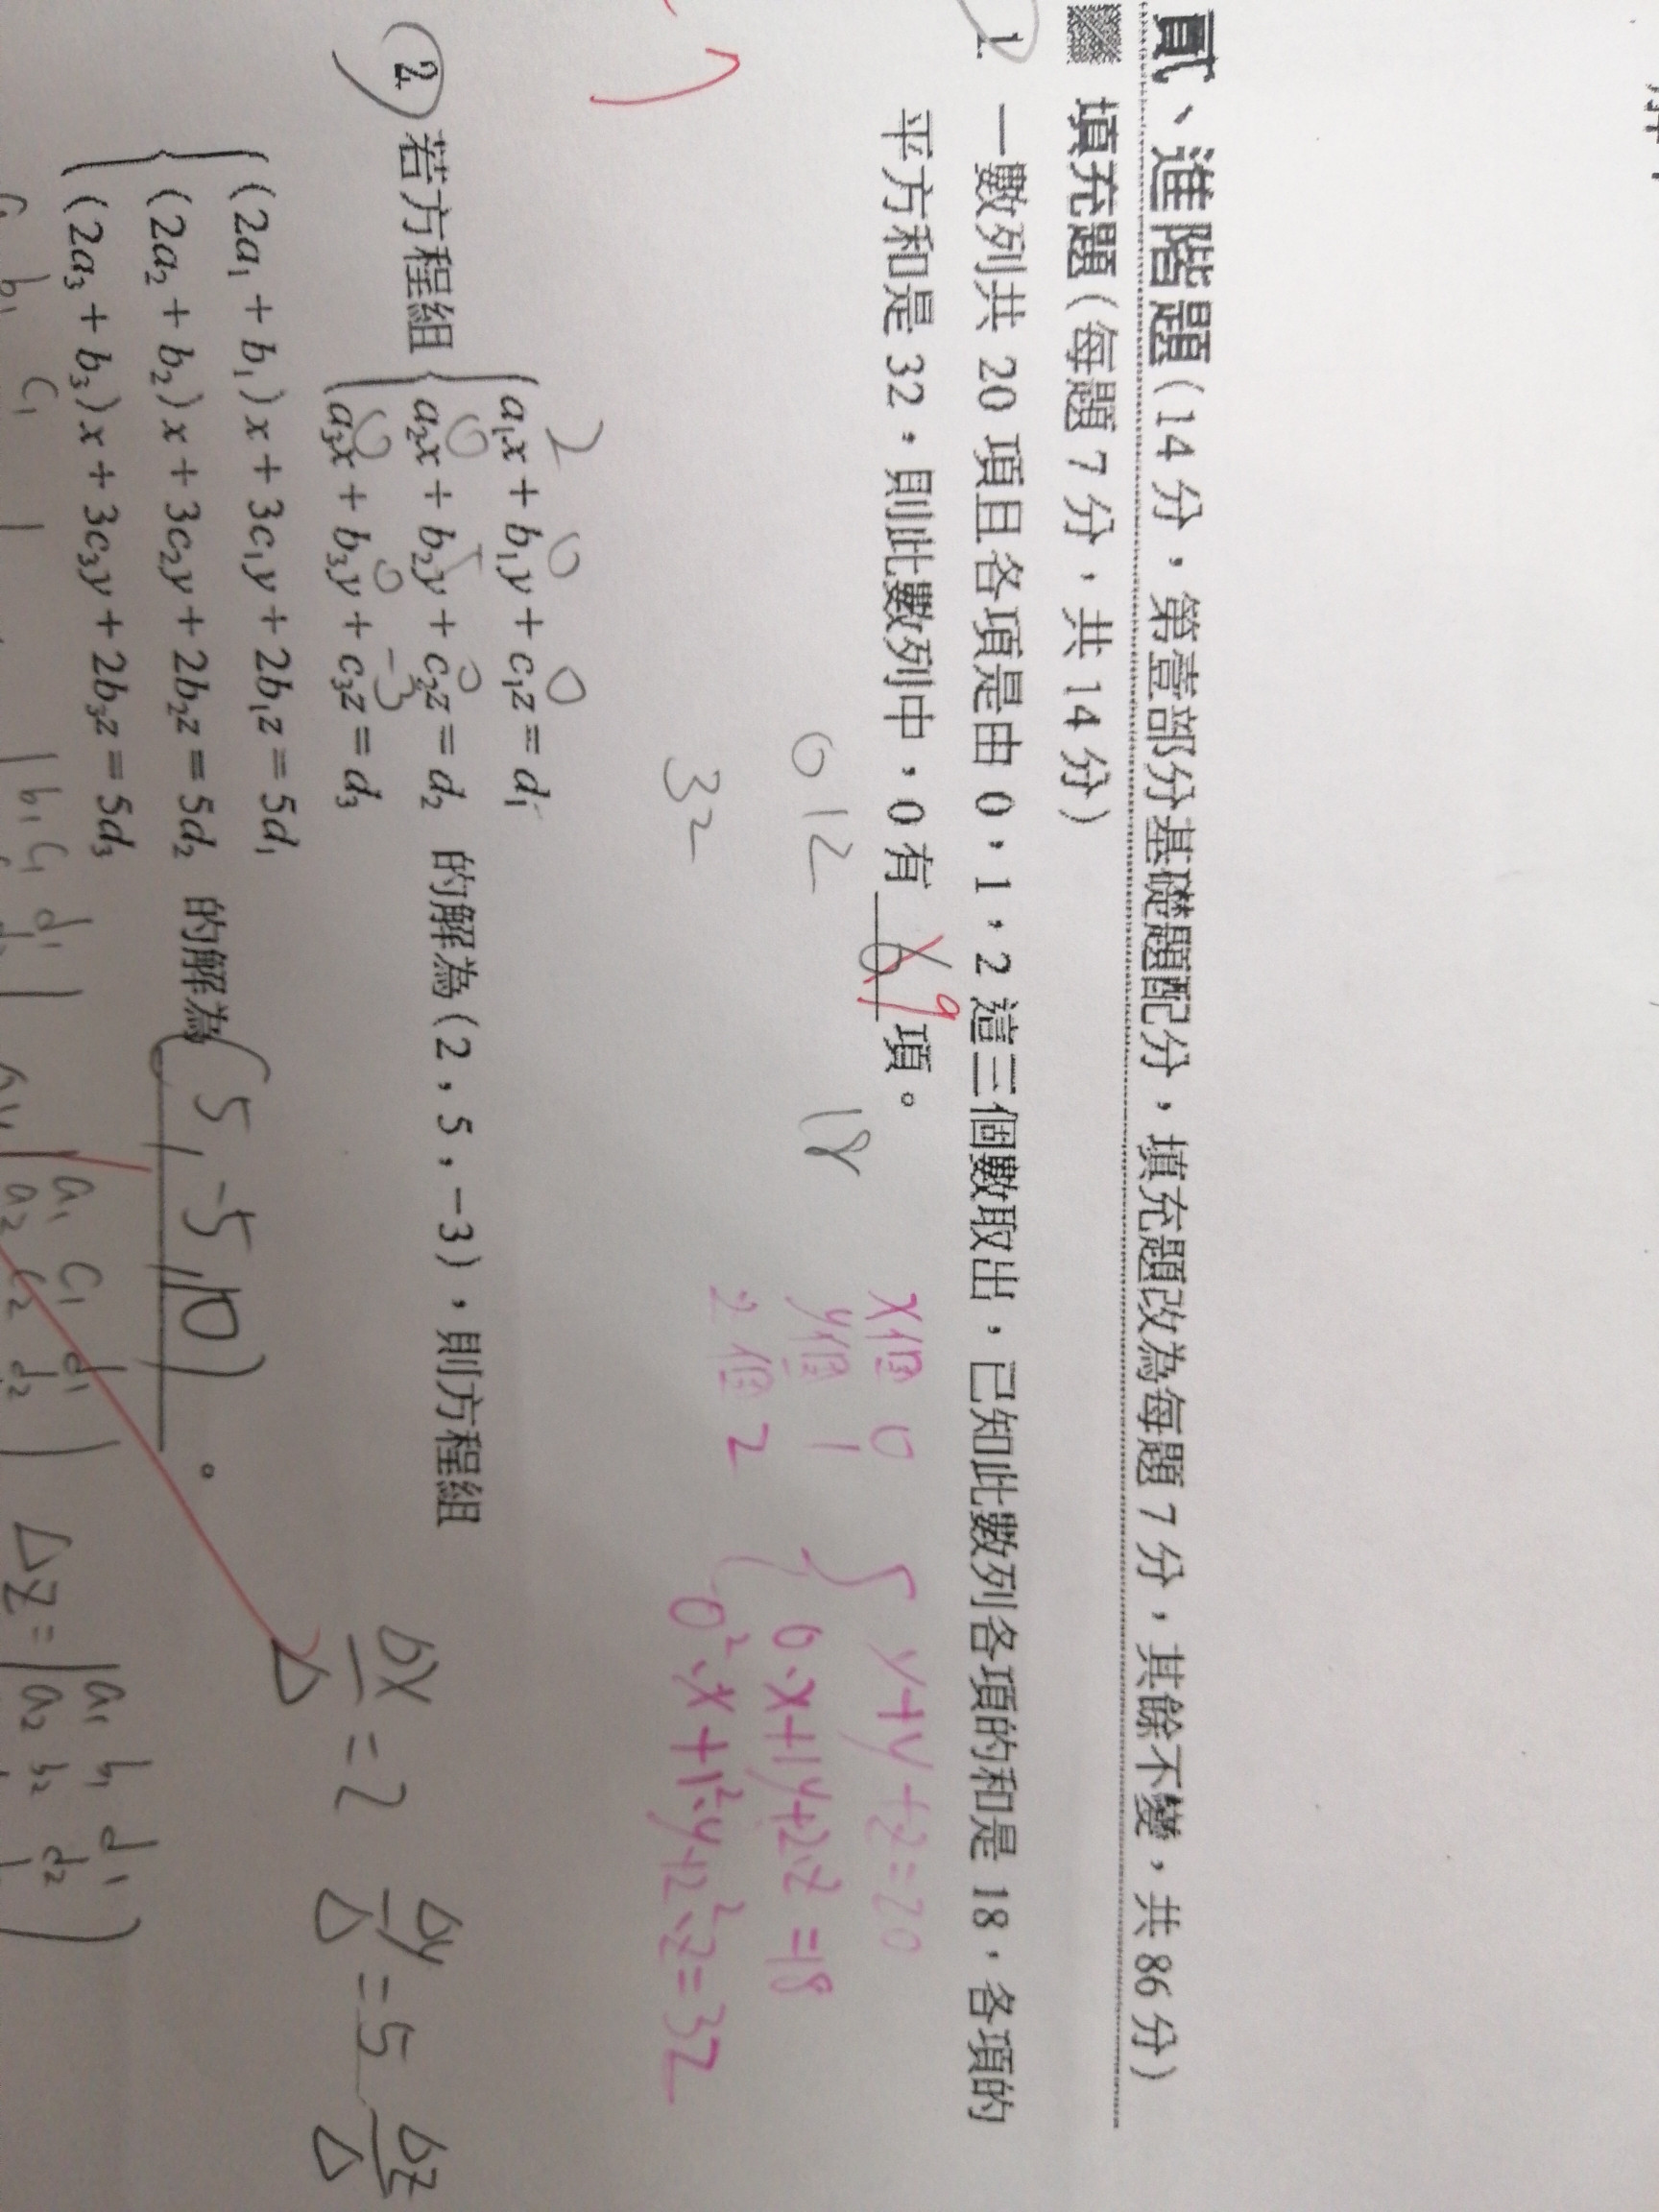 貳、進階題(14分，第壹部分基礎題配分，填充題改為每題7分，其餘不變，共86分)
填充題(每題7分，共14分)
1. 一數列共20項且各項是由0，1，2這三個數取出，已知此數列各項的和是18，各項的
平方和是32，則此數列中，0有 6 9 項。
0 1 2
32
18
x個 0
y個 1
z個 2
x+y+z=20
0·x+1y+2z=18
0²·x+1²·y+2²·z=32
2 若方程組
a₁x+b₁y+c₁z=d₁
a₂x+b₂y+c₂z=d₂
a₃x+b₃y+c₃z=d₃
的解為(2，5，-3)，則方程組
2 0 0
0 5 0
0 0 -3
(2a₁+b₁)x+3c₁y+2b₁z=5d₁
(2a₂+b₂)x+3c₂y+2b₂z=5d₂
(2a₃+b₃)x+3c₃y+2b₃z=5d₃
的解為 (5, -5, 10) 。
Δx/Δ=2 Δy/Δ=5 Δz/Δ
b₁ c₁
b₁ c₁ d₁
a₁ c₁ d₁
a₂ c₂ d₂
Δz=
a₁ b₁ d₁
a₂ b₂ d₂